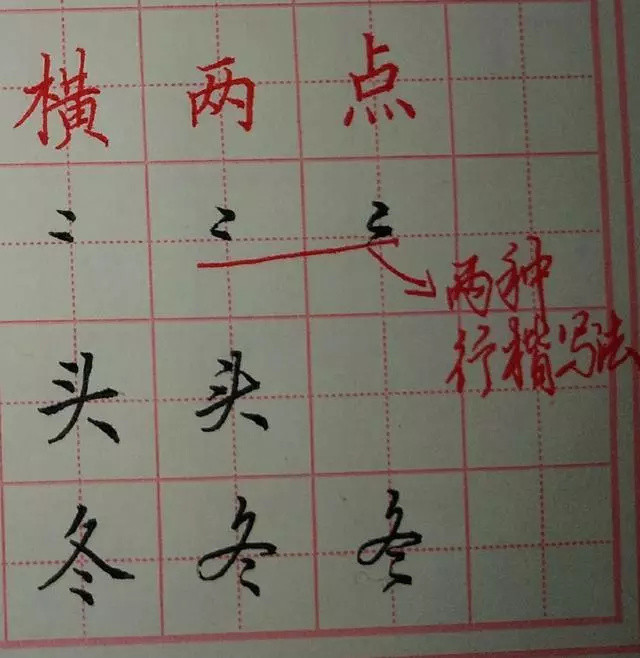 横两点
两种
行楷写法
头头
冬冬冬